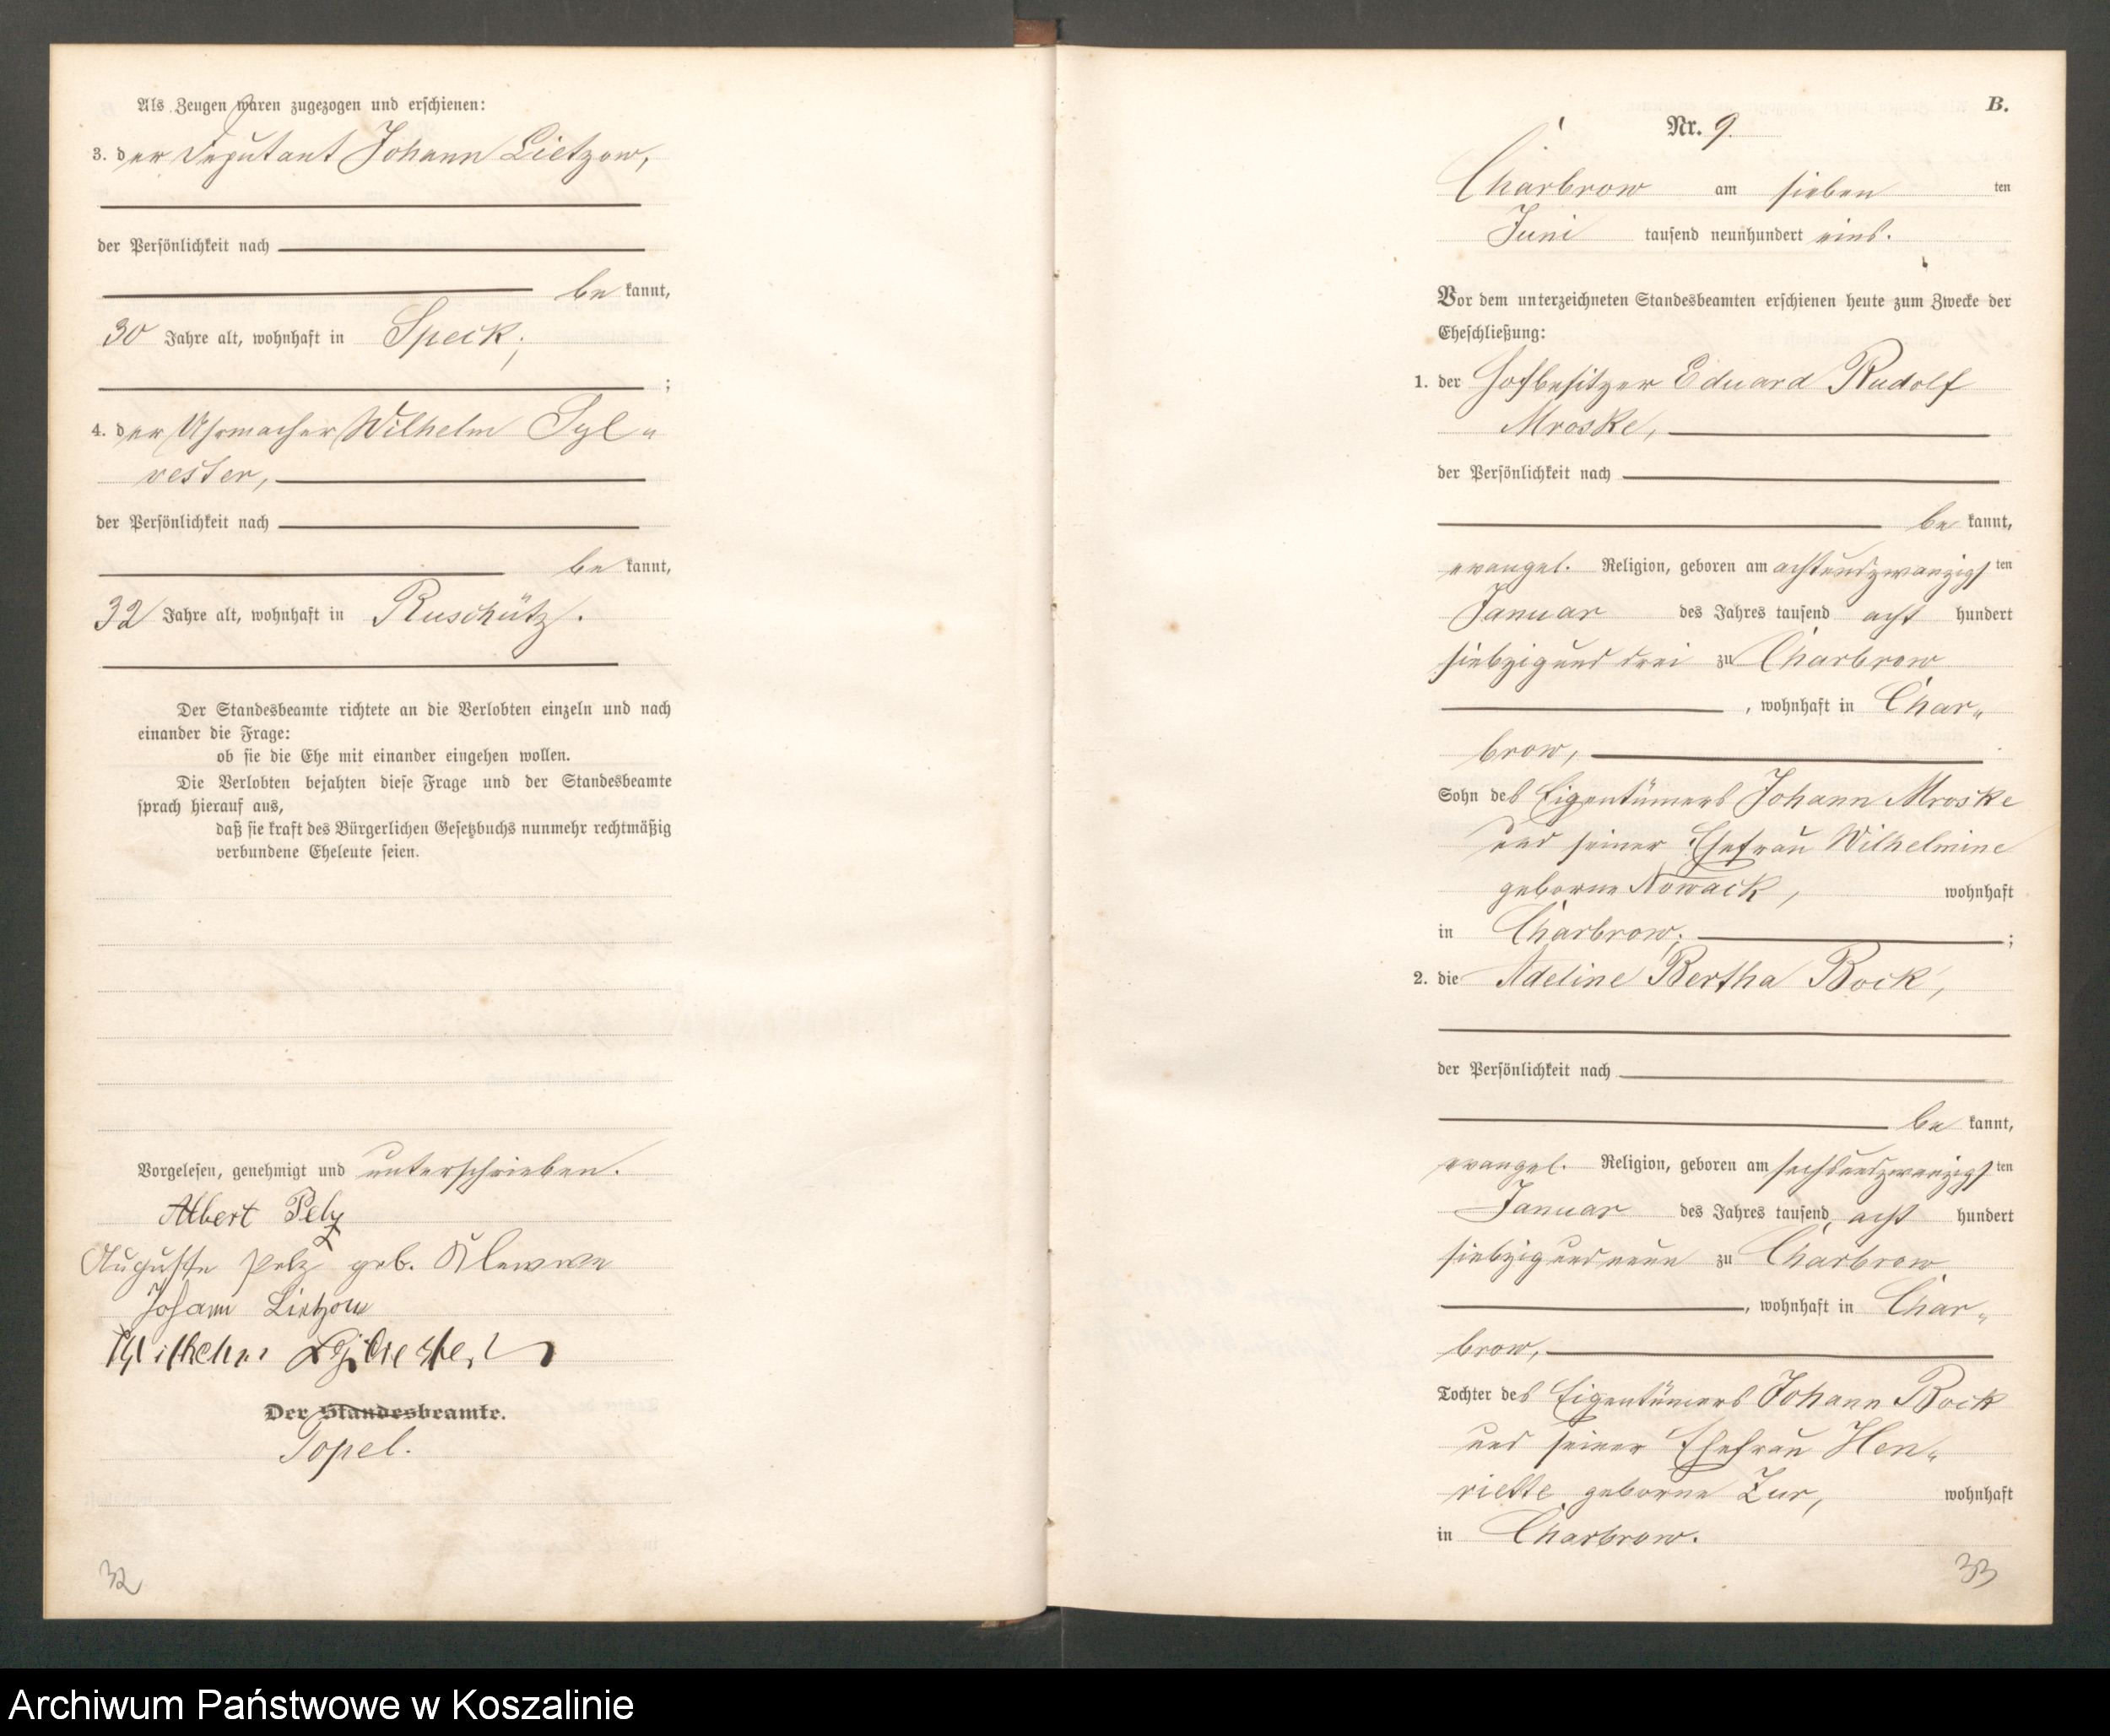 Als Zeugen waren zugezogen und erschienen:
3. der Deputant Johann Lietzow,
der Persönlichkeit nach
be kannt,
30 Jahre alt, wohnhaft in Speck;
;
4. der Uhrmacher Wilhelm Syl„
vester,
der Persönlichkeit nach
be kannt,
32 Jahre alt, wohnhaft in Ruschütz.
Der Standesbeamte richtete an die Verlobten einzeln und nach
einander die Frage:
ob sie die Ehe mit einander eingehen wollen.
Die Verlobten bejahten diese Frage und der Standesbeamte
sprach hierauf aus,
daß sie kraft des Bürgerlichen Gesetzbuchs nunmehr rechtmäßig
verbundene Eheleute seien.
Vorgelesen, genehmigt und unterschrieben.
Albert Pelz
Auguste Pelz geb.
Johann Lietzow
Wilhelm Sylvester
Der Standesbeamte.
Topel.
32
B.
Nr. 9.
Charbrow am sieben ten
Juni tausend neunhundert eins.
Vor dem unterzeichneten Standesbeamten erschienen heute zum Zwecke der
Eheschließung:
1. der Hofbesitzer Eduard Rudolf
Mroske,
der Persönlichkeit nach
be kannt,
evangel. Religion, geboren am achtundzwanzigs ten
Januar des Jahres tausend acht hundert
siebzig und drei zu Charbrow
, wohnhaft in Char„
brow,
Sohn des Eigentümers Johann Mroske
und seiner Ehefrau Wilhelmine
geborne Nowack, wohnhaft
in Charbrow. ;
2. die Adeline Bertha Bock,
der Persönlichkeit nach
be kannt,
evangel. Religion, geboren am sechsundzwanzigs ten
Januar des Jahres tausend acht hundert
siebzig und neun zu Charbrow
, wohnhaft in Char„
brow,
Tochter des Eigentümers Johann Bock
und seiner Ehefrau Hen„
riette geborne Zur, wohnhaft
in Charbrow.
33
Archiwum Państwowe w Koszalinie